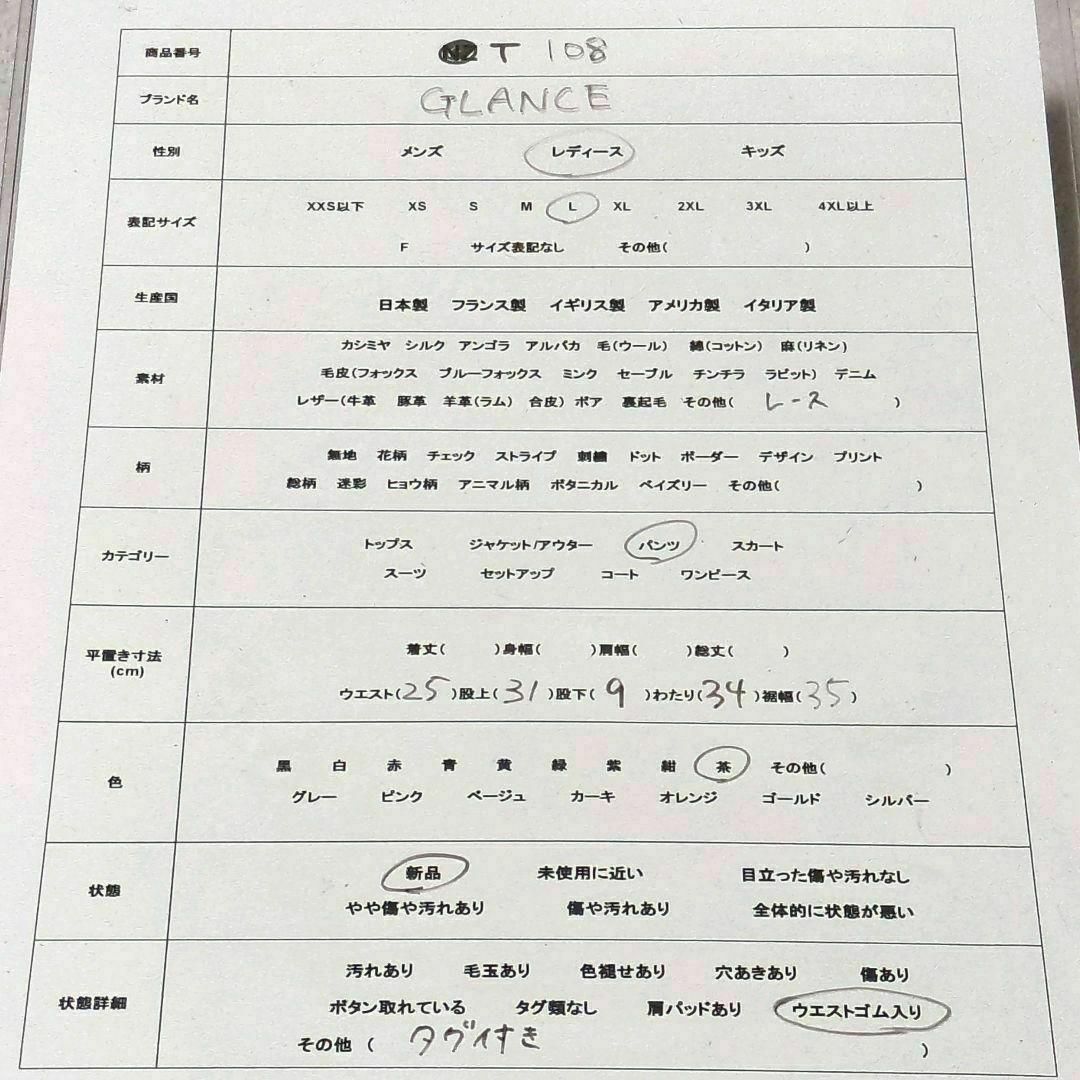 商品番号 T 108
ブランド名 GLANCE
性別 メンズ レディース キッズ
表記サイズ XXS以下 XS S M L XL 2XL 3XL 4XL以上
F サイズ表記なし その他( )
生産国 日本製 フランス製 イギリス製 アメリカ製 イタリア製
素材 カシミヤ シルク アンゴラ アルパカ 毛(ウール) 綿(コットン) 麻(リネン)
毛皮(フォックス ブルーフォックス ミンク セーブル チンチラ ラビット) デニム
レザー(牛革 豚革 羊革(ラム) 合皮) ボア 裏起毛 その他( レース )
柄 無地 花柄 チェック ストライプ 刺繍 ドット ボーダー デザイン プリント
総柄 迷彩 ヒョウ柄 アニマル柄 ボタニカル ペイズリー その他( )
カテゴリー トップス ジャケット/アウター パンツ スカート
スーツ セットアップ コート ワンピース
平置き寸法 着丈( )身幅( )肩幅( )総丈( )
(cm) ウエスト(25)股上(31)股下(9)わたり(34)裾幅(35)
色 黒 白 赤 青 黄 緑 紫 紺 茶 その他( )
グレー ピンク ベージュ カーキ オレンジ ゴールド シルバー
状態 新品 未使用に近い 目立った傷や汚れなし
やや傷や汚れあり 傷や汚れあり 全体的に状態が悪い
状態詳細 汚れあり 毛玉あり 色褪せあり 穴あきあり 傷あり
ボタン取れている タグ類なし 肩パッドあり ウエストゴム入り
その他 ( タグ付き )